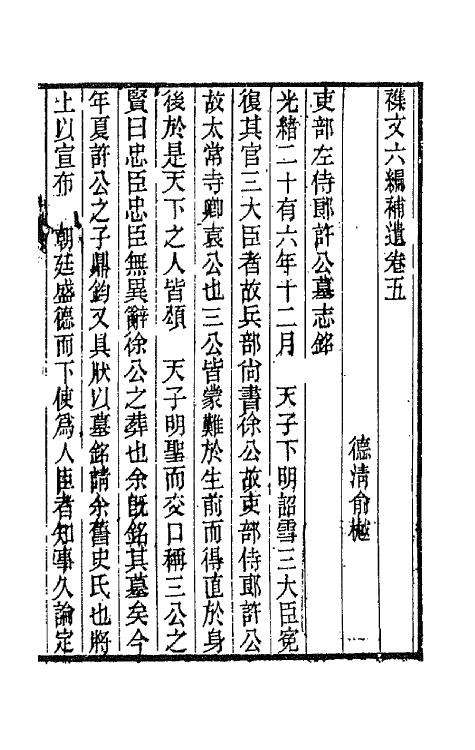 襍文六編補遺卷五
德清俞樾
吏部左侍郎許公墓志銘
光緒二十有六年十二月　天子下明詔雪三大臣寃
復其官三大臣者故兵部尚書徐公故吏部侍郎許公
故太常寺卿袁公也三公皆蒙難於生前而得直於身
後於是天下之人皆頌　天子明聖而交口稱三公之
賢曰忠臣忠臣無異辭徐公之葬也余旣銘其墓矣今
年夏許公之子鼎鈞又具狀以墓銘請余舊史氏也將
上以宣布　朝廷盛德而下使爲人臣者知事久論定